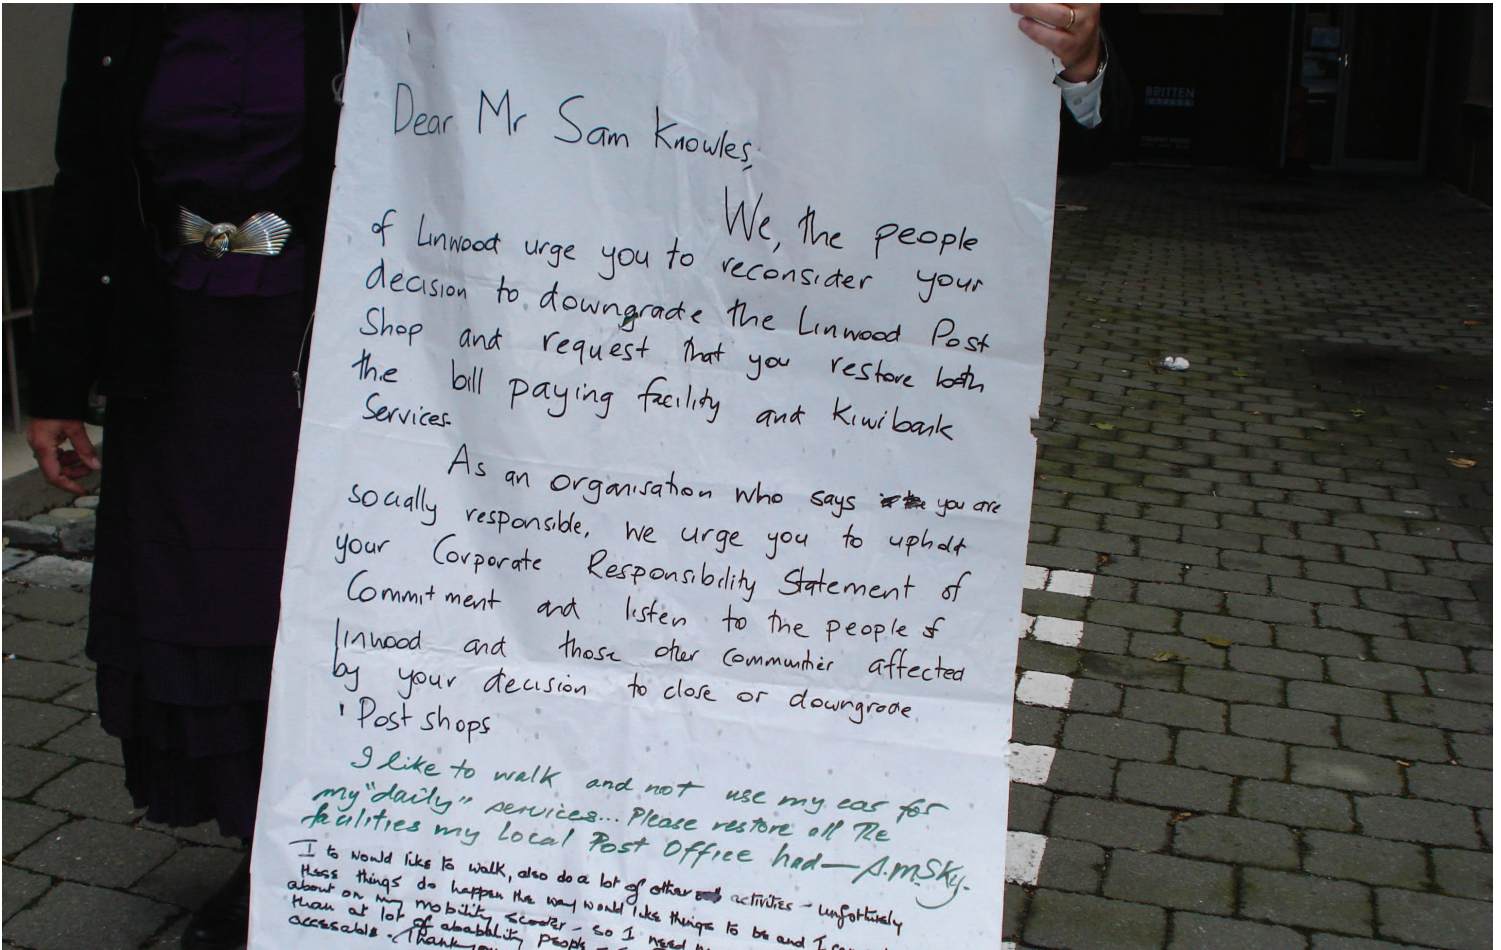 Dear Mr Sam Knowles,
We, the people
of Linwood urge you to reconsider your
decision to downgrade the Linwood Post
Shop and request that you restore both
the bill paying facility and Kiwibank
Services.
As an organisation who says you are
socially responsible, we urge you to uphold
your Corporate Responsibility Statement of
Commitment and listen to the people of
Linwood and those other communities affected
by your decision to close or downgrade
Post shops
I like to walk and not use my car for
my "daily" services... Please restore all the
facilities my Local Post Office had — A.M.Sky.
I to would like to walk, also do a lot of other activities - unfortunely
these things do happen the way would like things to be and I
about on my mobility scooter - so I need
than at lot of people
accessable. Thank you
BRITTEN